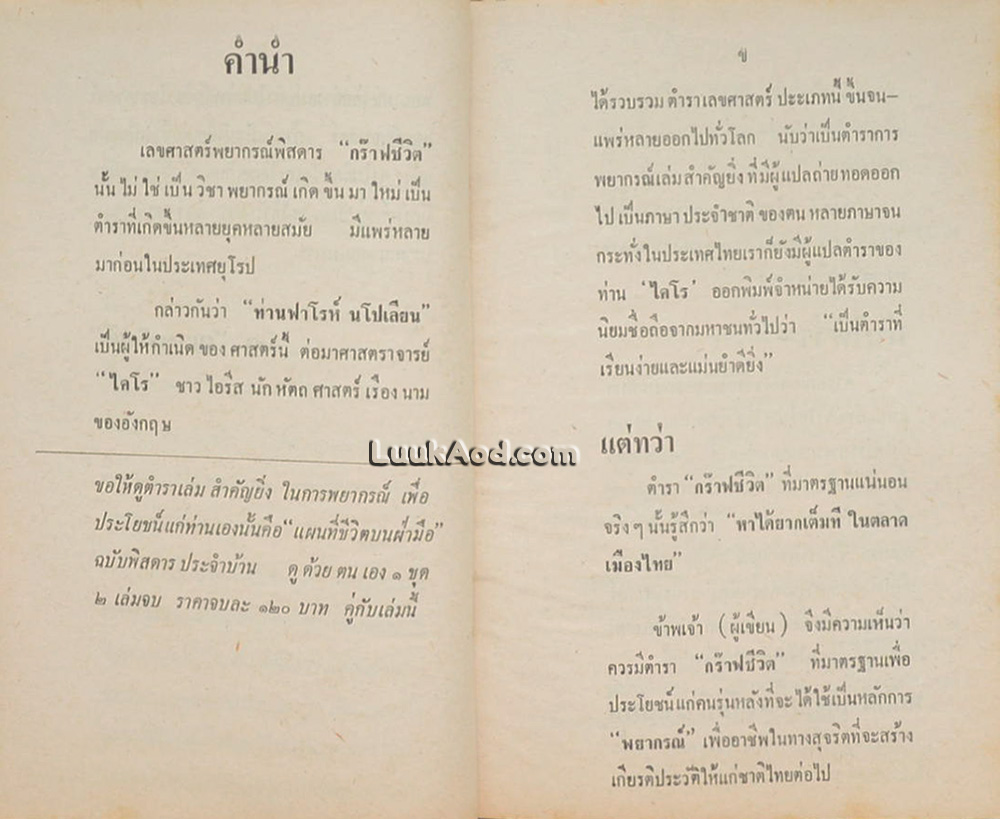 คำนำ
เลขศาสตร์พยากรณ์พิสดาร "กร๊าฟชีวิต"
นั้น ไม่ ใช่ เป็น วิชา พยากรณ์ เกิด ขึ้น มา ใหม่ เป็น
ตำราที่เกิดขึ้นหลายยุคหลายสมัย มีแพร่หลาย
มาก่อนในประเทศยุโรป
กล่าวกันว่า "ท่านฟาโรห์ นโปเลียน"
เป็นผู้ให้กำเนิด ของ ศาสตร์นี้ ต่อมาศาสตราจารย์
"ไคโร" ชาว ไอรีส นัก หัตถ ศาสตร์ เรือง นาม
ของอังกฤษ
ขอให้ดูตำราเล่ม สำคัญยิ่ง ในการพยากรณ์ เพื่อ
ประโยชน์แก่ท่านเองนั้นคือ "แผนที่ชีวิตบนฝ่ามือ"
ฉบับพิสดาร ประจำบ้าน ดู ด้วย ตน เอง ๑ ชุด
๒ เล่มจบ ราคาจบละ ๑๒๐ บาท คู่กับเล่มนี้
ข
ได้รวบรวม ตำราเลขศาสตร์ ประเภทนี้ ขึ้นจน–
แพร่หลายออกไปทั่วโลก นับว่าเป็นตำราการ
พยากรณ์เล่ม สำคัญยิ่ง ที่ มีผู้แปลถ่ายทอดออก
ไป เป็นภาษา ประจำชาติ ของตน หลายภาษาจน
กระทั่งในประเทศไทยเราก็ยังมีผู้แปลตำราของ
ท่าน 'ไคโร' ออกพิมพ์จำหน่ายได้รับความ
นิยมชื่อถือจากมหาชนทั่วไปว่า "เป็นตำราที่
เรียนง่ายและแม่นยำดียิ่ง"
แต่ทว่า
ตำรา "กร๊าฟชีวิต" ที่มาตรฐานแน่นอน
จริง ๆ นั้นรู้สึกว่า "หาได้ยากเต็มที ในตลาด
เมืองไทย"
ข้าพเจ้า (ผู้เขียน) จึงมีความเห็นว่า
ควรมีตำรา "กร๊าฟชีวิต" ที่มาตรฐานเพื่อ
ประโยชน์ แก่คนรุ่นหลังที่จะ ได้ใช้เป็นหลักการ
"พยากรณ์" เพื่ออาชีพในทางสุจริตที่จะสร้าง
เกียรติประวัติให้แก่ชาติไทยต่อไป
LuukAod.com